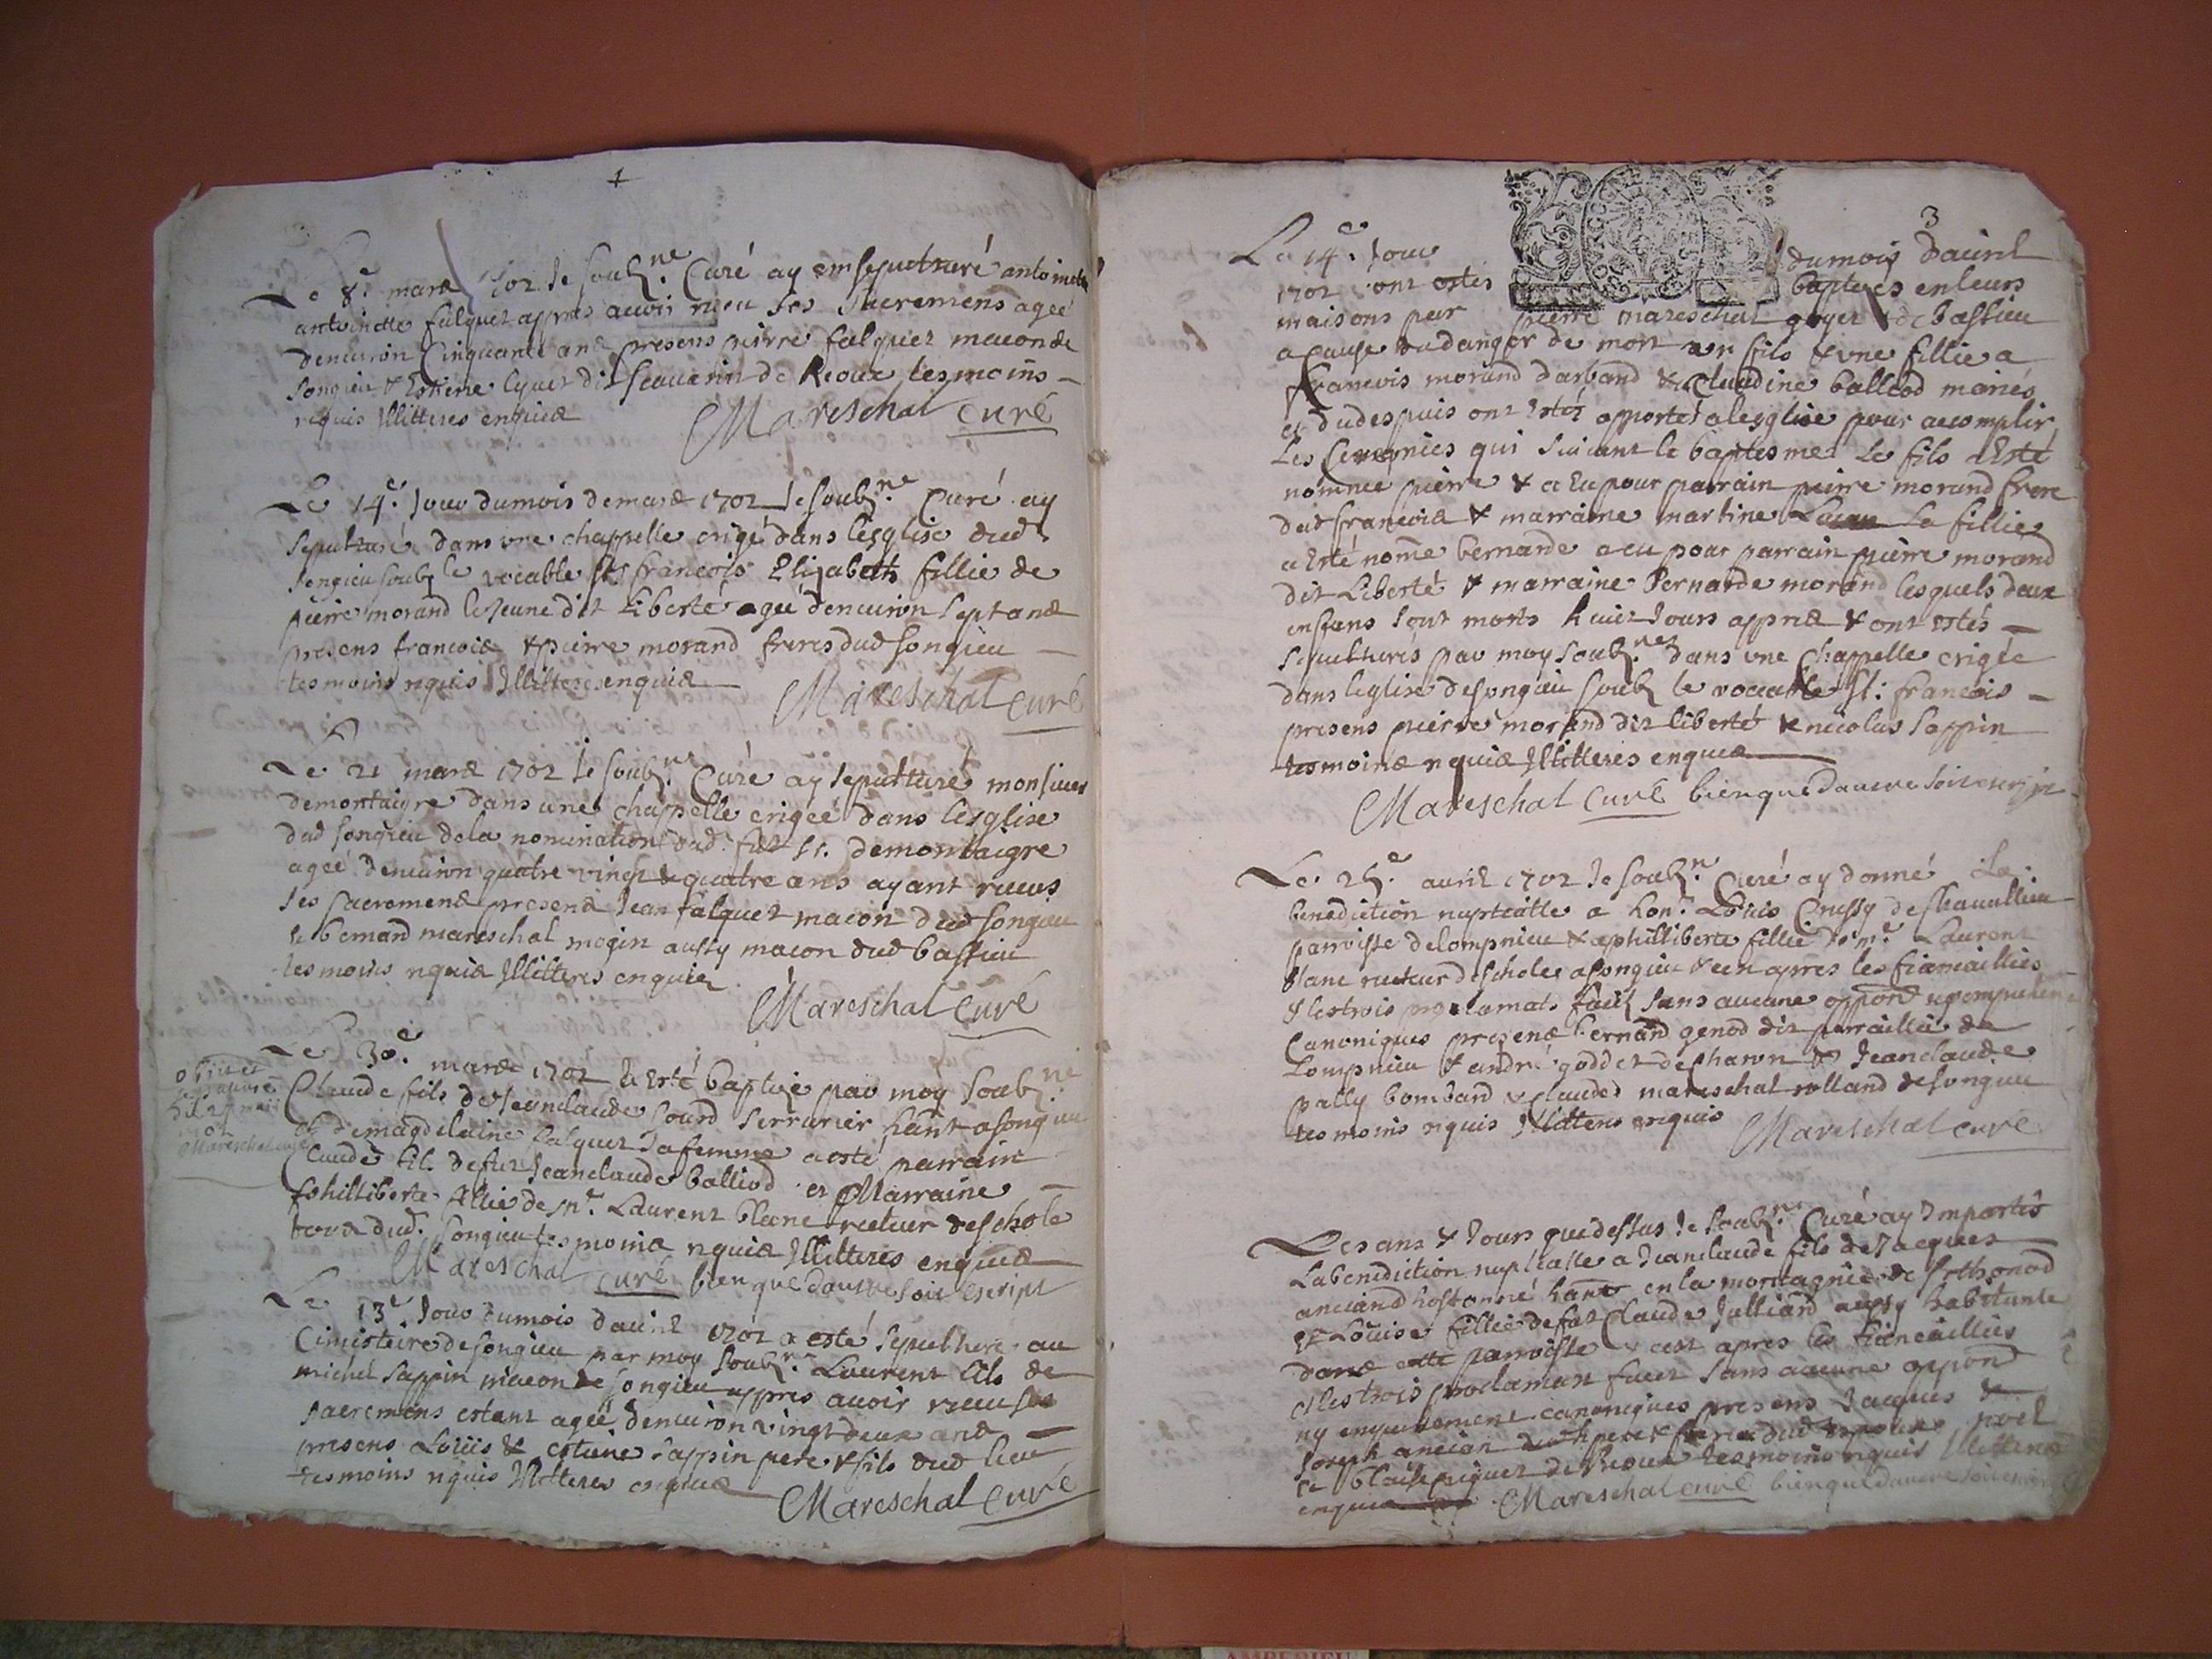 Le 8e. mars 1702 Je soubz.ne Curé ay ensepulturé antoinette
antoinette falquet appres avoir receu ses sacremens agee
denuiron Cinquante ans presens pierre falquet macon de
songieu & Estiene liquet dit de Rioux tesmoins
requis Illitteres enquis
Mareschal curé
Le 14e. Jour du mois de mars 1702 Je soubz.ne Curé ay
sepulturé dans vne chappelle erigé dans lesglise dud
songieu soubz le vocable st francois Elizabeth fillie de
pierre morand le Jeune dit Liberté agé denuiron sept ans
presens francois & pierre morand freres dud songieu
tesmoins requis Illitteres enquis
Mareschal curé
Le 21 mars 1702 Je soubz.ne Curé ay sepulturé monsieur
demontaigre dans une chappelle erigeé dans lesglise
dud songieu de la nomination dud. fut sr. demontaigre
ageé denuiron quatre vingt & quatre ans ayant receus
ses sacremens presens Jean falquet macon dud songieu
& bernard mareschal mogin aussy macon dud bassieu
tesmoins requis Illitteres enquis
Mareschal Curé
Le 30e. mars 1702 a Esté baptizé par moy soubz.né
Claude fils de Jeanclaude sourd serrurier hant a songieu
et de magdelaine falquet sa femme a esté parrain
Claude fils de fut Jeanclaude balliod et Marraine
philliberte fillie de me. Laurent blanc recteur deschole
dud. songieu tesmoins requis Illitteres enquis
Mareschal curé bien que dautre soit escript
3
Mareschal curé
Le 13e Jour du mois dauril 1702 a esté sepulturé au
Cimisteire de songieu par moy soubz.ne Laurent fils de
michel sappin macon de songieu appres auoir receu ses
sacremens estant ageé denuiron vingt deux ans
presens Loüis & estiene sappin pere & fils dud lieu
tesmoins requis Illitteres enquis
Mareschal curé
Le 14e. Jour du mois dauril
1702 ont estés baptizés en leurs
maisons par pierre mareschal goyet de bassieu
a cause du danger de mort un fils & vne fillie a
francois morand darband & Claudine balleod mariés
et du despuis ont estés apportés a lesglise pour accomplir
Les Ceremonies qui suiuent le baptesme Le fils a Esté
nommé pierre & a eu pour parrain pierre morand frere
dud francois & marraine martine La fillie
a Esté nomé bernarde a eu pour parrain pierre morand
dit Liberté & marraine Bernarde morand lesquels deux
enfans sont morts huict Jours appres & ont estés
sepulturés par moy soubz.ne dans vne Chappelle erigée
dans leglise de songieu soubz le vocable st: francois
presens pierre morand dit liberté & nicolas sappin
tesmoins requis Illitteres enquis
Mareschal curé bien que dautre soit escript
Le 25e. auril 1702 Je soubz.ne Curé ay donné La
benediction nuptialle a hon.e Loüis Crussy de
parroisse de lompnieu & a philliberte fillie de me. Laurent
blanc recteur deschole a songieu & ce apres les fiancailles
& les trois proclamats faits sans aucune oppon
Canoniques presens bernard genod dit de
Lompnieu & andré goddet de charon & Jeanclaude
pally bombard & claude mareschal rolland de songieu
tesmoins requis Illitteres enquis Mareschal curé
Les ans & Jours que dessus Je soubz.ne Curé ay Impartis
La benediction nuptialle a Jeanclaude fils de Jacques
anciand hostonné hant en la montagnie de sothonod
et Loüise fillie de fut Claude Julliard aussy habitante
dans cette parroisse & cest apres les fiancaillies
et les trois proclamats faicts sans aucune oppon
ny empechement canoniques presens Jacques &
Joseph ancian pere & frere dud espoux noel
et blaise piquet de Rioux tesmoins requis Illitteres
enquis Mareschal curé bien que dautre soit escript